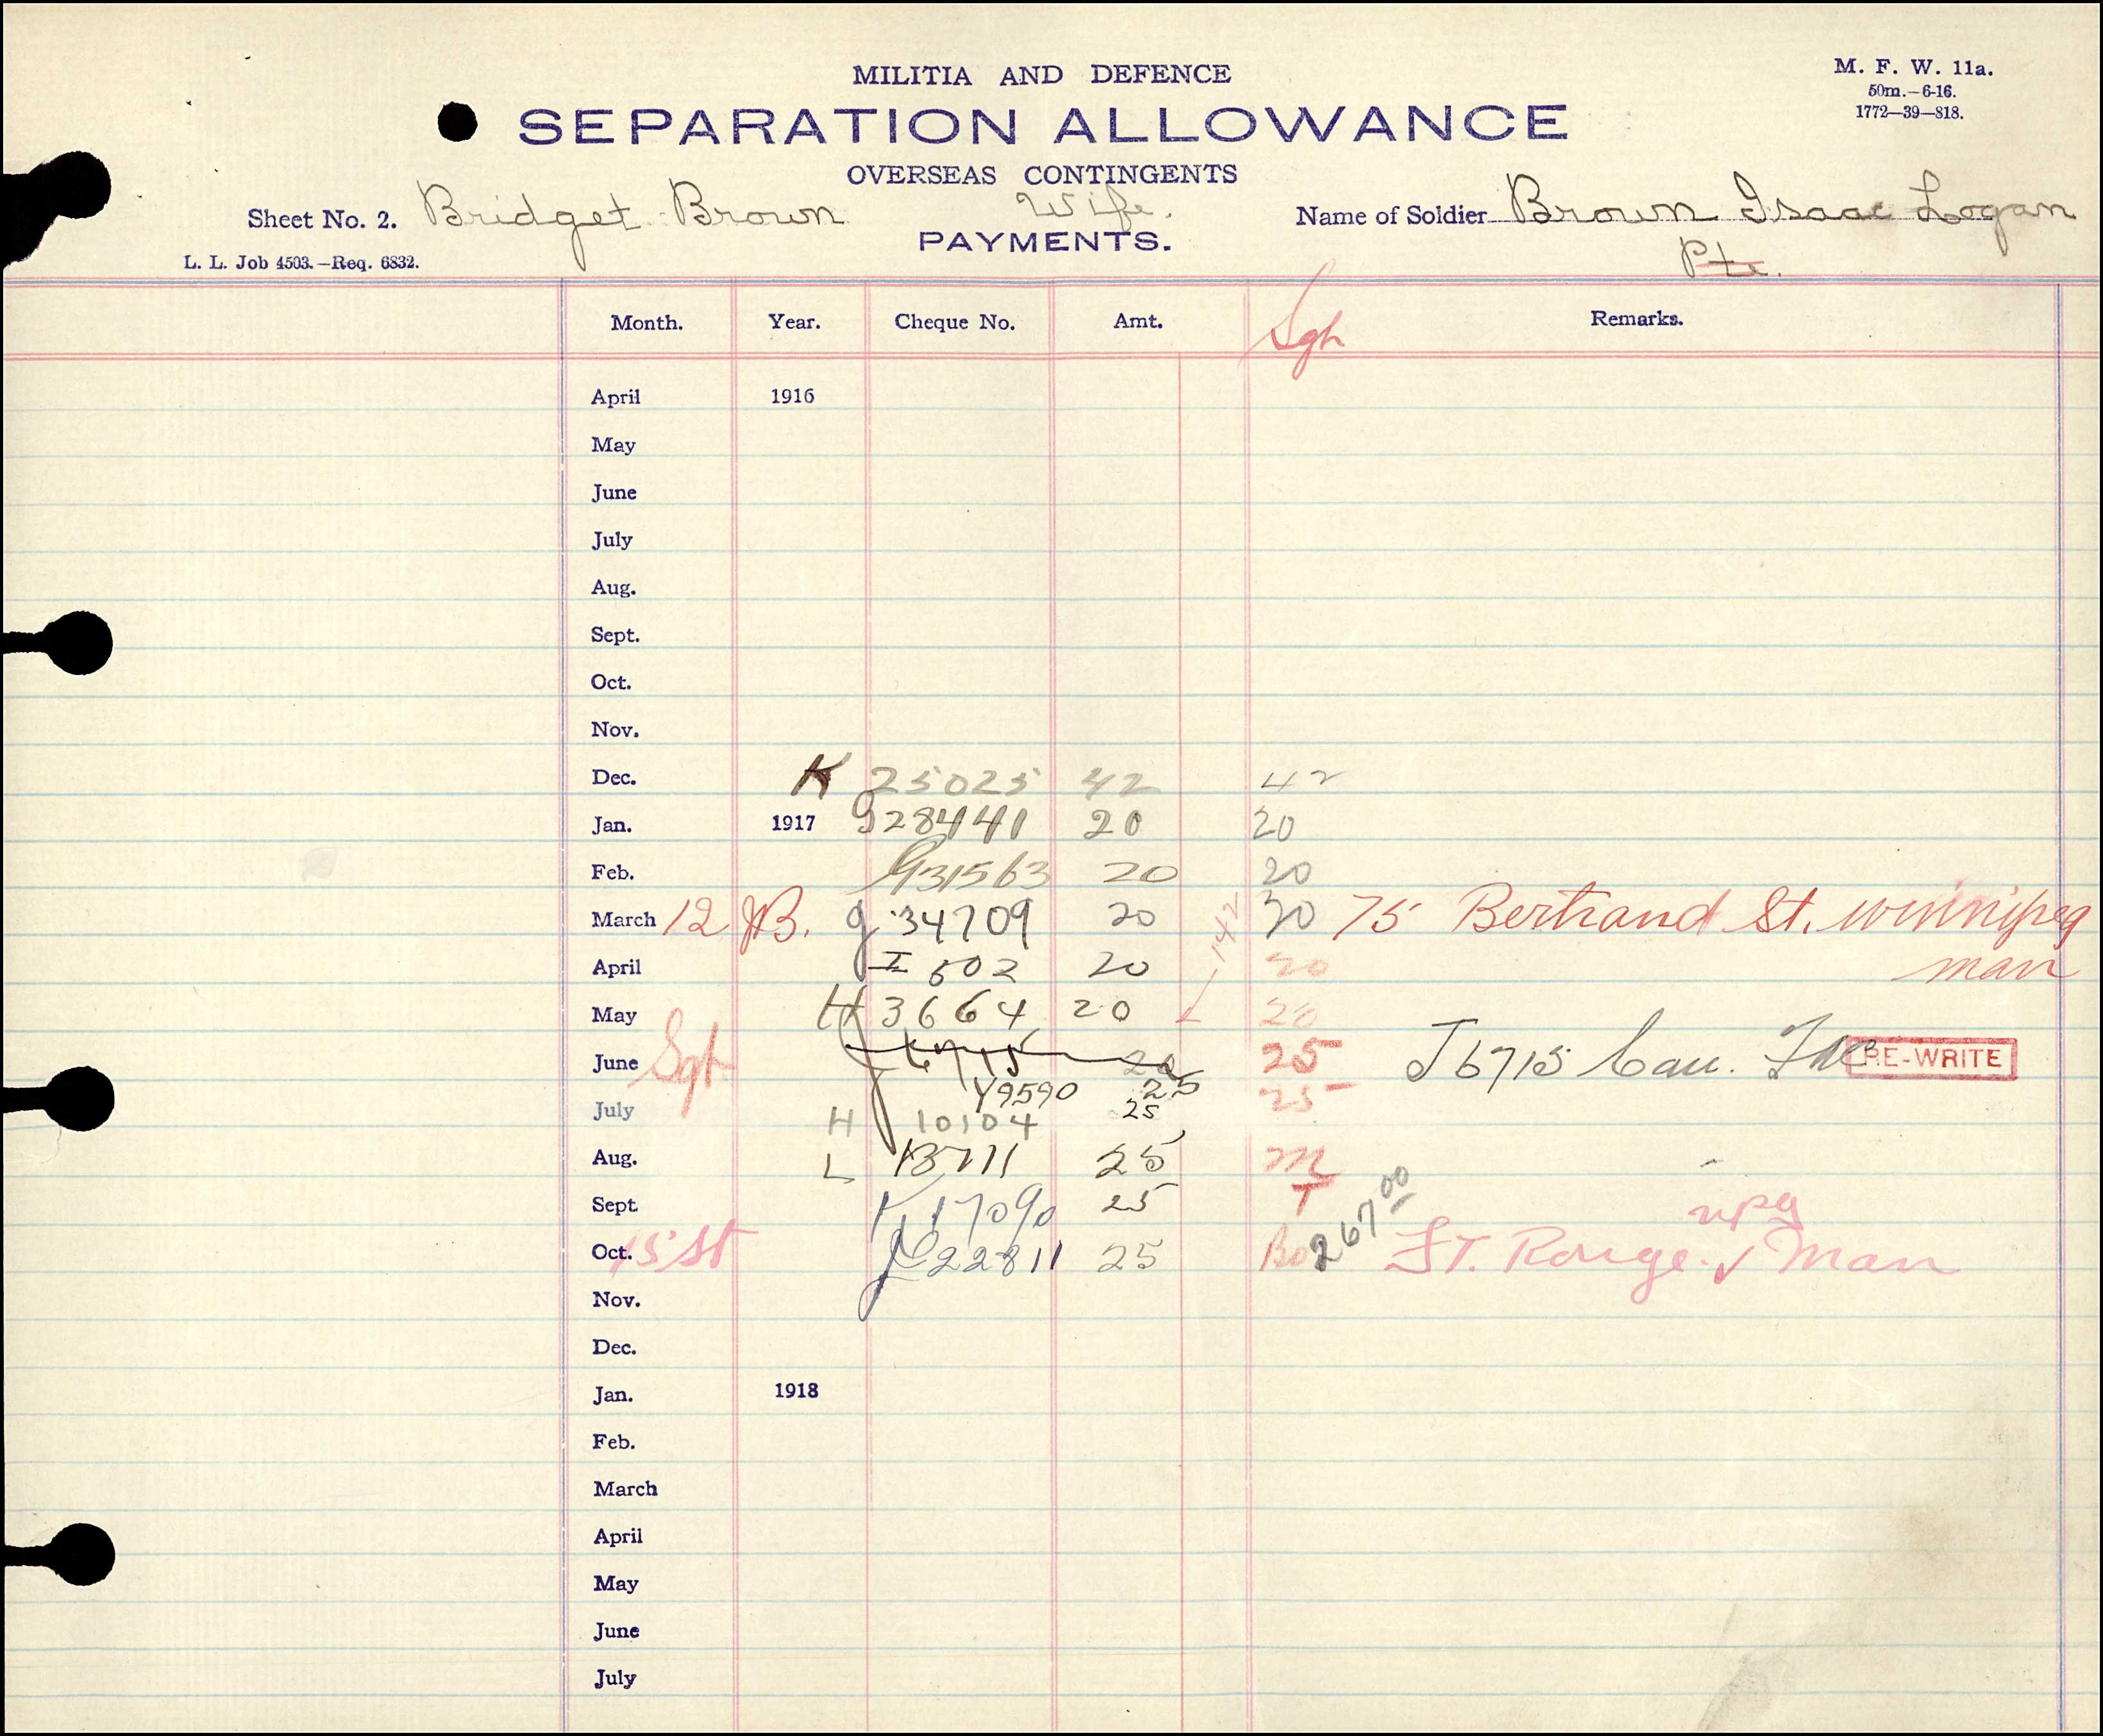 MILITIA AND DEFENCE
M. F. W. 11a.
50m.—6-16.
1772—39—818.
SEPARATION ALLOWANCE
OVERSEAS CONTINGENTS
Sheet No. 2. Bridget Brown Wife. Name of Soldier Brown Isaac Logan
PAYMENTS.
Pte.
L. L. Job 4503.—Req. 6832.
Month. Year. Cheque No. Amt. Remarks.
April 1916
May
June
July
Aug.
Sept.
Oct.
Nov.
Dec. K 25025 42 42
Jan. 1917 G28441 20 20
Feb. G31563 20 20
March 12 g 34709 20 20 75 Bertrand St. Winnipeg
April I 502 20 20 man
May H 3664 20 142 20
June Sgt 6715 20 25 J 6715 Can. RE-WRITE
Y9590 25
July H 10104 25 25
Aug. L 13711 25 M
Sept. K 17090 25 T 267 00 wpg
Oct. 22811 25 St. Rouge. Man
Nov.
Dec.
Jan. 1918
Feb.
March
April
May
June
July